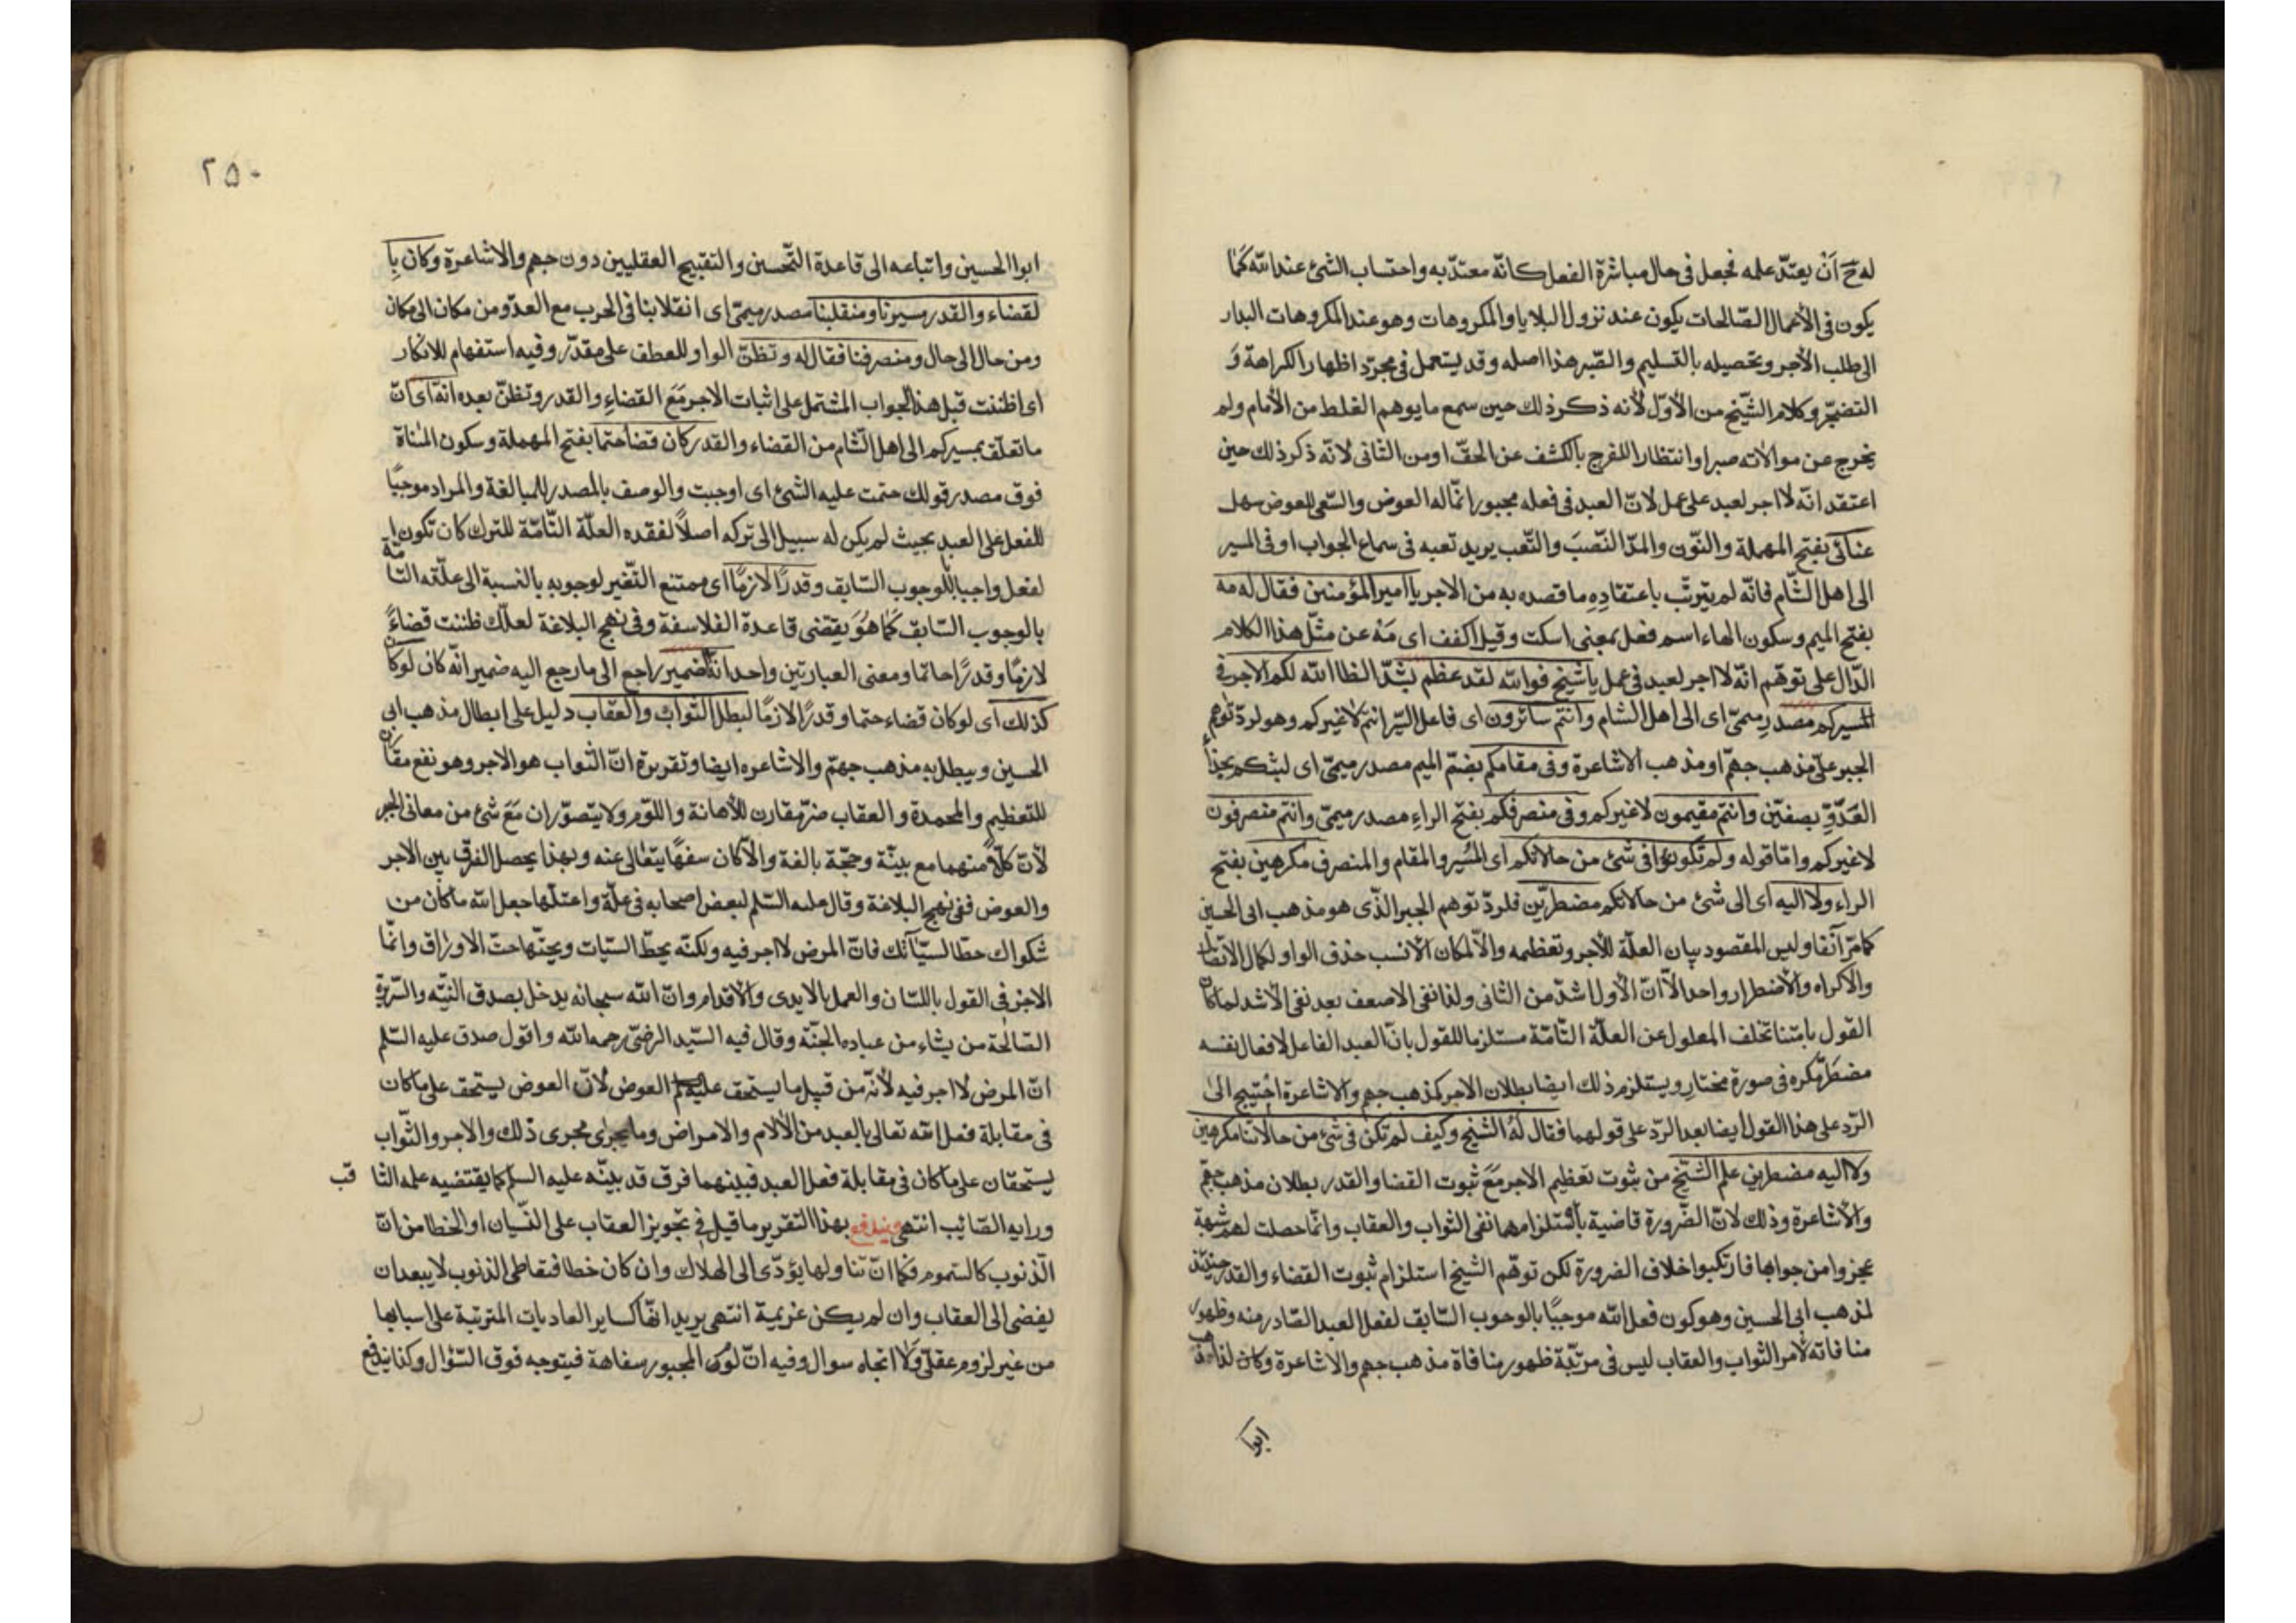 له ح أن يعتدّ عمله فجعل فى حال مباشرة الفعل كانّه معتدّ به واحتساب الشئ عند الله كما
يكون فى الأعمال الصّالحات يكون عند نزول البلايا والمكروهات وهو عند المكروهات البدار
الى طلب الأجر وتحصيله بالتسليم والصّبر هذا اصله وقد يستعمل فى مجرّد اظهار الكراهة وَ
التضجّر وكلام الشّيخ من الأوّل لأنه ذكر ذلك حين سمع ما يوهم الغلط من الأمام ولم
يخرج عن موالاته صبرا وانتظارا للفرج بالكشف عن الحقّ او من الثانى لانّه ذكر ذلك حين
اعتقد انّه لا اجر لعبد على عمل لانّ العبد فى فعله مجبور انّما له العوض والسّعى للعوض سهل
عنائى بفتح المهملة والنّون والمدّ النّصبَ والتّعب يريد تعبه فى سماع الجواب او فى المسير
الى اهل الشّام فانّه لم يترتّب باعتقادِهِ ما قصده به من الاجر يا امير المؤمنين فقال له مه
بفتح الميم وسكون الهاء اسم فعل بمعنى اسكت وقيل اكفف اى مَهْ عن مثل هذا الكلام
الدّال على توهّم انّه لا اجر لعبد فى عمل يا شيخ فوالله لقد عظم بشدّ الظا الله لكم الاجر فى
المسيركم مصدر ميمىّ اى الى اهل الشام وانتم سائرون اى فاعل السّير انتم لا غيركم وهو لردّ توهم
الجبر على مذهب جهم او مذهب الاشاعرة وفى مقامكم بضمّ الميم مصدر ميمىّ اى لبثكم بحذاء
العَدُوِّ بصفّين وانتم مقيمون لا غيركم وفى منصرفكم بفتح الراءِ مصدر ميمىّ وانتم منصرفون
لا غيركم وامّا قوله ولم تكونوا فى شئ من حالاتكم اى المَسير والمقام والمنصرف مكرهين بفتح
الراء ولا اليه اى الى شئ من حالاتكم مضطرّين فلردّ توهم الجبر الذّى هو مذهب ابى الحسين
كما مرّ آنفا وليس المقصود بيان العلّة للأجر وتعظيمه والاّ لمكان الأنسب حذف الواو لكمال الاتصال
والاكراه والأضطرار واحد الاّ انّ الأول اشدّ من الثانى ولذا نفى الاضعف بعد نفى الأشد لما كان
القول بامتناع تخلف المعلول عن العلّة التّامّة مستلزما للقول بانّ العبد الفاعل لافعال نفسه
مضطرّ مكره فى صورة مختارٍ ويستلزم ذلك ايضا بطلان الاجر كمذهب جهم والاشاعرة احتيج الى
الردّ على هذا القول ايضا بعد الردّ على قولهما فقال لهُ الشيخ وكيف لم نكن فى شئ من حالاتنا مكرهين
ولا اليه مضطرين علم الشّيخ من ثبوت تعظيم الاجر مَعَ ثبوت القضا والقدر بطلان مذهب جهم
والأشاعرة وذلك لانّ الضّرورة قاضية بأستلزامهما نفى الثواب والعقاب وانّما حصلت لهم شبهة
عجزوا من جوابها فارتكبوا خلاف الضرورة لكن توهّم الشيخ استلزام ثبوت القضاء والقدر حينئذ
لمذهب ابى الحسين وهو كون فعل الله موجبًا بالوجوب السّابق لفعل العبد الصّادر منه وظهور
منافاته لأمر الثواب والعقاب ليس فى مرتبة ظهور منافاة مذهب جهم والاشاعرة وكان لذا ذهب
ابوا
٢٥٠
ابوا الحسين واتباعه الى قاعدة التّحسين والتقبيح العقليين دون جهم والاشاعرة وكان بِا
لقضاء والقدر مسيرنا ومنقلبنا مصدر ميمىّ اى انقلابنا فى الحرب مع العدوّ من مكان الى مكان
ومن حال الى حال ومنصرفنا فقال له وتظنّ الواو للعطف على مقدّر وفيه استفهام للانكار
اى اظننت قبل هذا الجواب المشتمل على اثبات الاجر مَعَ القضاءِ والقدر وتظنّ بعده انّه اى انّ
ما تعلّق بمسيركم الى اهل الشّام من القضاء والقدر كان قضا حتما بفتح المهملة وسكون المثناة
فوق مصدر قولك حتمت عليه الشئ اى اوجبت والوصف بالمصدر للمبالغة والمراد موجبًا
للفعل على العبد بحيث لم يكن له سبيل الى تركه اصلاً لفقده العلّة التّامّة للترك كان تكون ا
لفعل واجبا بالوجوب السّابق وقدرًا لازمًا اى ممتنع التّغير لوجوبه بالنسبة الى علّته التّامّة
بالوجوب السّابق كَمَا هُوَ يقتضى قاعدة الفلاسفة وفى نهج البلاغة لعلّك ظننت قضاءً
لازمًا وقدرًا حاتما ومعنى العبارتين واحد انّه ضمير راجع الى ما رجع اليه ضمير انّه كان لو كان
كذلك اى لو كان قضاء حتما وقدرًا لازمًا لبطل الثواب والعقاب دليل على ابطال مذهب ابى
الحسين ويبطل به مذهب جهم والاشاعره ايضا وتقريرة انّ الثواب هو الاجر وهو نفع مقارن
للتعظيم والمحمدة والعقاب ضرّ مقارن للأهانة واللّوم ولا يتصوّران مَعَ شئ من معانى الجبر
لأنّ كلاًّ منهما مع بيّنة وحجّة بالغة والاّ كان سفهًا يتعالى عنه وبهذا يحصل الفرق بين الاجر
والعوض ففى نهج البلاغة وقال عليه السّلم لبعض اصحابه فى علّة واعتلّها جعل الله ما كان من
شكواك حطّا لسيّآتك فانّ المرض لا اجر فيه ولكنّه يحطّ السيّات ويحتّها حتّ الاوراق وانّما
الاجر فى القول باللسّان والعمل بالايدى والأقدام وانّ الله سبحانه يدخل بصدق النيّه والسّريرة
الصّالحة من يشاء من عباده الجنّة وقال فيه السّيّد الرضىّ رحمه الله واقول صدق عليه السّلم
انّ المرض لا اجر فيه لأنّه من قبيل ما يستحق عليه العوض لانّ العوض يستحق على ما كان
فى مقابلة فعل الله تعالى بالعبد من الألام والامراض وما يجرى مجرى ذلك والاجر والثّواب
يستحقان على ما كان فى مقابلة فعل العبد فبينهما فرق قد بيّنه عليه السلم كما يقتضيه علمه الثا قب
ورايه الصّائب انتهى ويندفع بهذا التقرير ما قيل فى تجويز العقاب على النّسيان او الخطا من انّ
الذنوب كالسّموم فكما انّ تناولها يؤدّى الى الهلاك وان كان خطا فتعاطى الذنوب لا يبعد ان
يفضى الى العقاب وان لم يكن عزيمة انتهى يريد انّها كساير العاديات المترتبة على اسبابها
من غير لزوم عقلىّ ولا اتجاه سوال وفيه انّ لوم المجبور سفاهة فيتوجه فوق السّؤال وكذا يندفع